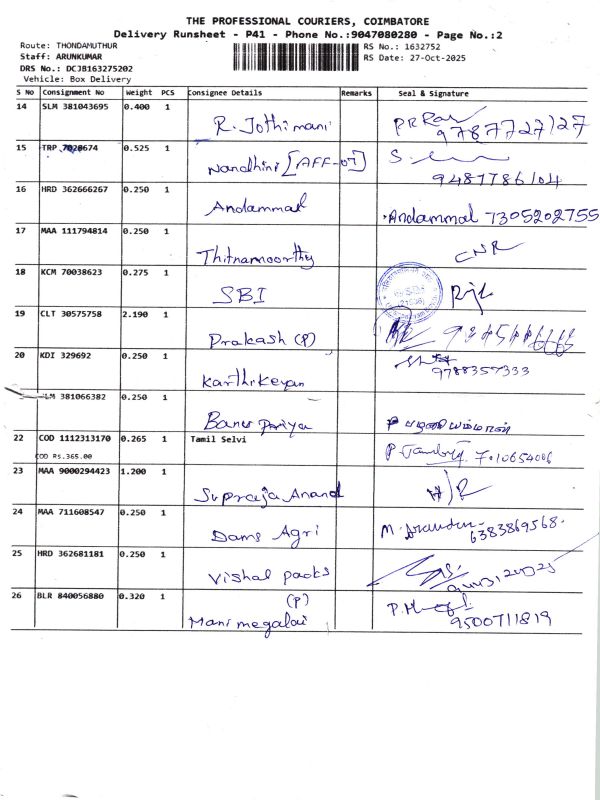 THE PROFESSIONAL COURIERS, COIMBATORE
Delivery Runsheet - P41 - Phone No.:9047080280 - Page No.:2
Route: THONDAMUTHUR
Staff: ARUNKUMAR
DRS No.: DCJB163275202
Vehicle: Box Delivery
RS No.: 1632752
RS Date: 27-Oct-2025
S No Consignment No Weight PCS Consignee Details Remarks Seal & Signature
14 SLM 381043695 0.400 1 R. Jothimani 9787727127
15 TRP 7020674 0.525 1 Nandhini [AFF-07] 9487786104
16 HRD 362666267 0.250 1 Andammal Andammal 7305202755
17 MAA 111794814 0.250 1 Thirnamoorthy CNR
18 KCM 70038623 0.275 1 SBI
19 CLT 30575758 2.190 1 Prakash (P)
20 KDI 329692 0.250 1 Karthikeyan 9788357333
381066382 0.250 1 Banu Priya
22 COD 1112313170 0.265 1 Tamil Selvi 7010654006
COD Rs.365.00
23 MAA 9000294423 1.200 1 Supraja Anand
24 MAA 711608547 0.250 1 Dams Agri 6383869568
25 HRD 362681181 0.250 1 Vishal packs
26 BLR 840056880 0.320 1 (P) Manimegalai 9500711819